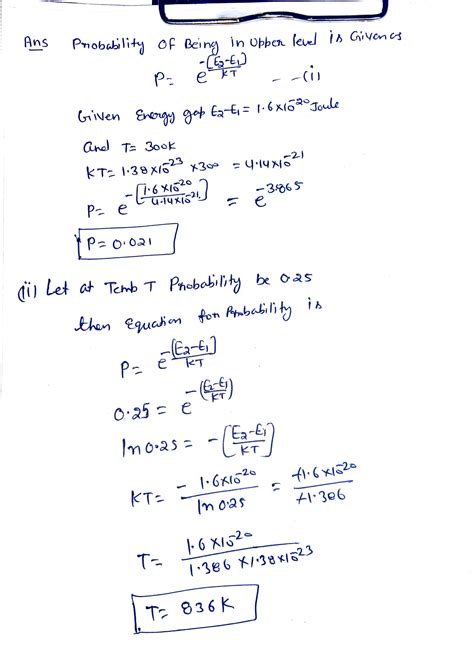 Ans Probability Of Being in Upper level is Given as
P = e^{-[E₂-E₁]/KT} - -(i)
Given Energy gap E₂-E₁ = 1.6×10^{-20} Joule
and T = 300K
KT = 1.38×10^{-23} ×300 = 4.14×10^{-21}
P = e^{-[1.6×10^{-20}/4.14×10^{-21}]} = e^{-3.865}
P = 0.021
(ii) Let at Temb T Probability be 0.25
then Equation for Probability is
P = e^{-[E₂-E₁]/KT}
0.25 = e^{-(E₂-E₁/KT)}
ln 0.25 = -[E₂-E₁/KT]
KT = -1.6×10^{-20}/ln 0.25 = +1.6×10^{-20}/+1.386
T = 1.6×10^{-20}/1.386 × 1.38×10^{-23}
T = 836K